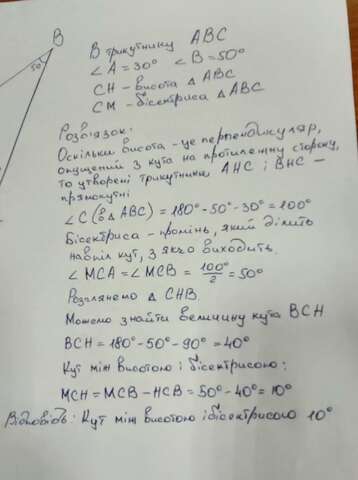 B
50°
В трикутнику ABC
∠A = 30° ∠B = 50°
CH - висота △ ABC
CM - бісектриса △ ABC
Розв'язок:
Оскільки висота - це перпендикуляр,
опущений з кута на протилежну сторону,
то утворені трикутники AHC і BHC —
прямокутні
∠C (в △ ABC) = 180° - 50° - 30° = 100°
Бісектриса - промінь, який ділить
навпіл кут, з якого виходить.
∠MCA = ∠MCB = 100°/2 = 50°
Розглянемо △ CHB.
Можемо знайти величину кута BCH
BCH = 180° - 50° - 90° = 40°
Кут між висотою і бісектрисою:
MCH = MCB - HCB = 50° - 40° = 10°
Відповідь: Кут між висотою і бісектрисою 10°